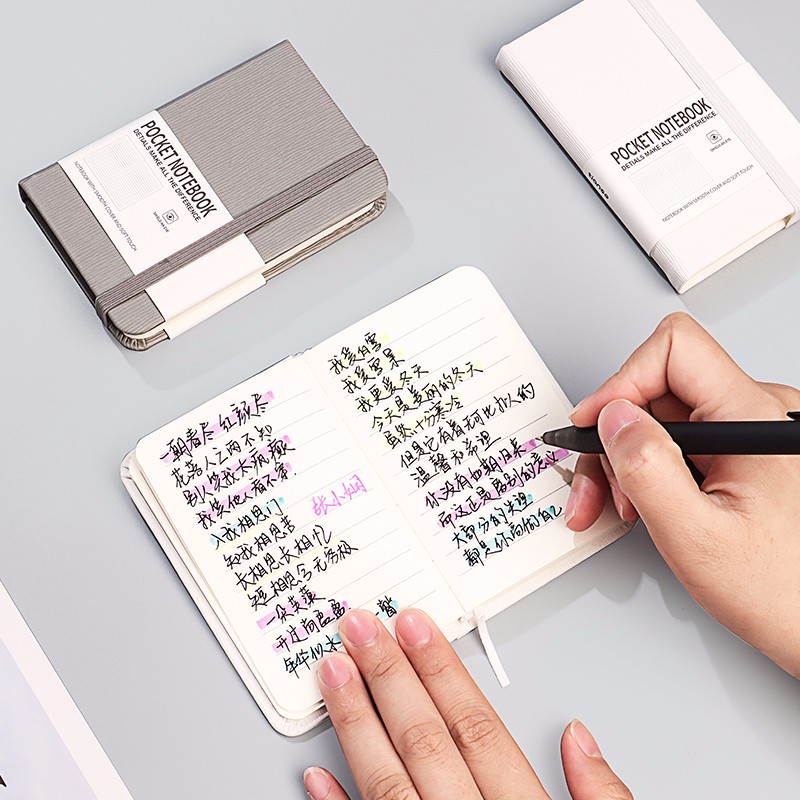 POCKET NOTEBOOK
DETIALS MAKE ALL THE DIFFERENCE.
NOTEBOOK WITH SMOOTH COVER AND SOFT TOUCH
POCKET NOTEBOOK
DETIALS MAKE ALL THE DIFFERENCE.
NOTEBOOK WITH SMOOTH COVER AND SOFT TOUCH
一朝春尽 红颜
花落人亡两不知
别人笑我太疯癫
我笑他人看不穿
入我相思门
知我相思苦
长相思长相忆
短相思兮无穷极
一朵芙蕖
开过尚盈盈
年华似水 一瞥
张小娴
我爱白雪
我爱雪景
我更爱冬天
今天是美丽的冬天
虽然十分寒冷
但是它有着无可比拟的
温馨和希望
你没有如期归来
而这正是离别的意义
大部分的失望
都是你高估自己